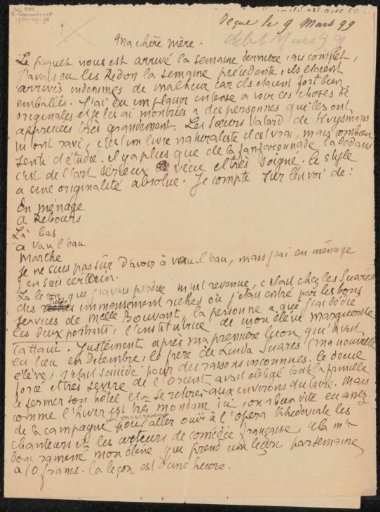 Reçue le 9 Mars 99
Ma chère mère.
Le paquet nous est arrivé la semaine dernière, au complet,
j'avais eu les Redon la semaine précédente, ils étaient
arrivés indemnes de malheur car ils étaient fort bien
emballés. J'ai eu un plaisir intense à voir ces choses si
originales et je les ai montrées à des personnes qu'elles ont
appréciées très grandement. Les soeurs Vatard de Huysmans
m'ont ravi, c'est un livre naturaliste c'est vrai, mais combien
senti et étudié. il y a plus que de la fanfaronnade là dedans
c'est de l'art sérieux vécu et très soigné. Le style
a une originalité absolue. Je compte sur l'envoi de :
En menage
A Rebours
Là bas
à vau l'eau
Marthe
Je ne suis pas sûr d'avoir à vau l'eau, mais j'ai en ménage
j'en suis certain.
La leçon que j'avais perdue m'est revenue, c'était chez les Suares
des immensement riches où j'étais entré par les bons
services de Melle Bouvant, la personne à qui j'ai dédié
ces deux portraits, l'institutrice de mon élève marguerite
Cattaui. Justement après ma première leçon qui avait
eu lieu en décembre, le frère de Linda Suares (ma nouvelle
élève) s'était suicidé pour des raisons inconnues. le deuil
forcé et très sévère de l'Orient avait obligé toute la famille
à fermer son hôtel et à se retirer aux environs du Caire. Mais
comme l'hiver est très mondain ici, on a bien vite eu assez
de la campagne pour aller ouïr à l'opéra Khediviale les
chanteurs et les acteurs de comédie française. Cela m'a
donc ramené mon élève qui prend une leçon par semaine
à 10 francs. La leçon est d'une heure.